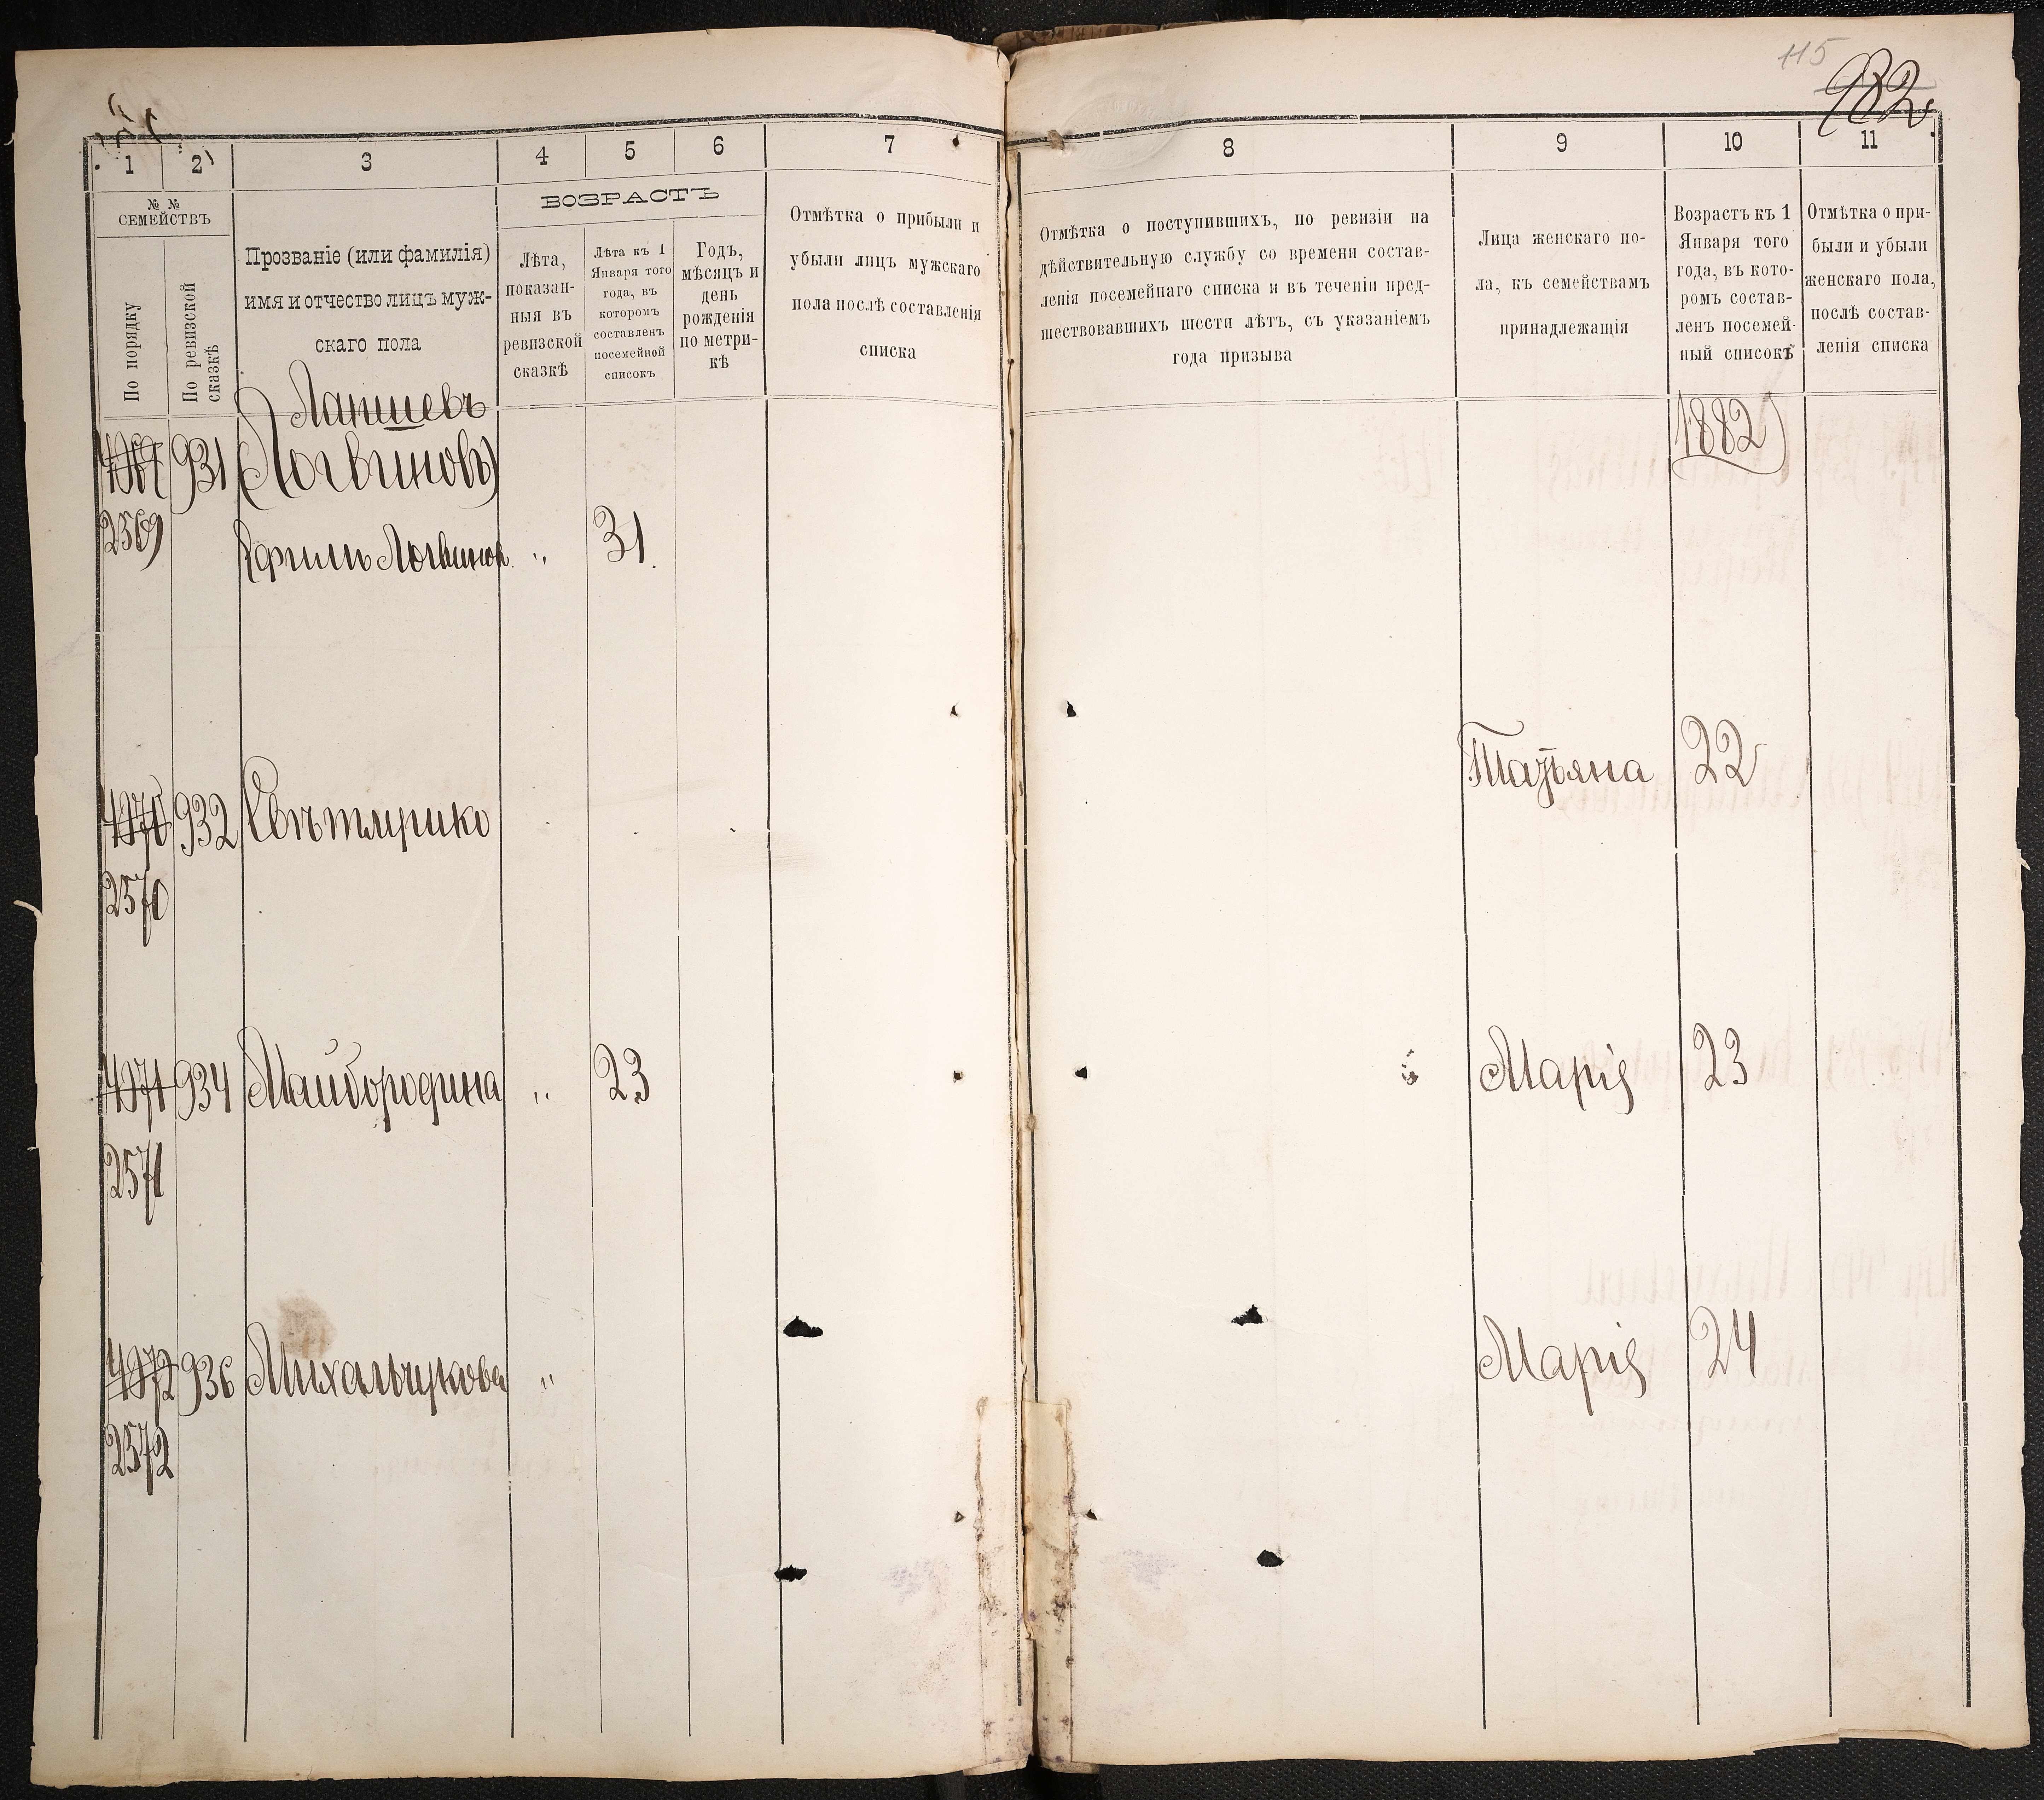 115
982
1
2
3
4
5
6
7
8
9
10
11
№ №
СЕМЕЙСТВЪ
По порядку
По ревизской
сказкѣ
Прозваніе (или фамилія)
имя и отчество лицъ муж-
скаго пола
ВОЗРАСТЪ
Лѣта,
показан-
ныя въ
ревизской
сказкѣ
Лѣта къ 1
Января того
года, въ
которомъ
составленъ
посемейной
списокъ
Годъ,
мѣсяцъ и
день
рожденія
по метри-
кѣ
Отмѣтка о прибыли и
убыли лицъ мужскаго
пола послѣ составленія
списка
Отмѣтка о поступившихъ, по ревизіи на
дѣйствительную службу со времени состав-
ленія посемейнаго списка и въ теченіи пред-
шествовавшихъ шести лѣтъ, съ указаніемъ
года призыва
Лица женскаго по-
ла, къ семействамъ
принадлежащія
Возрастъ къ 1
Января того
года, въ кото-
ромъ состав-
ленъ посемей-
ный списокъ
Отмѣтка о при-
были и убыли
женскаго пола,
послѣ состав-
ленія списка
Лапшевъ
4969 931 (Логвиновъ) 1882
2569
Ефимъ Логвинов. " 31.
Татьяна 22
4970 932
2570
4971 934 Майбородина " 23 Марія 23
2571
4972 936 Михальчукова " Марія 24
2572